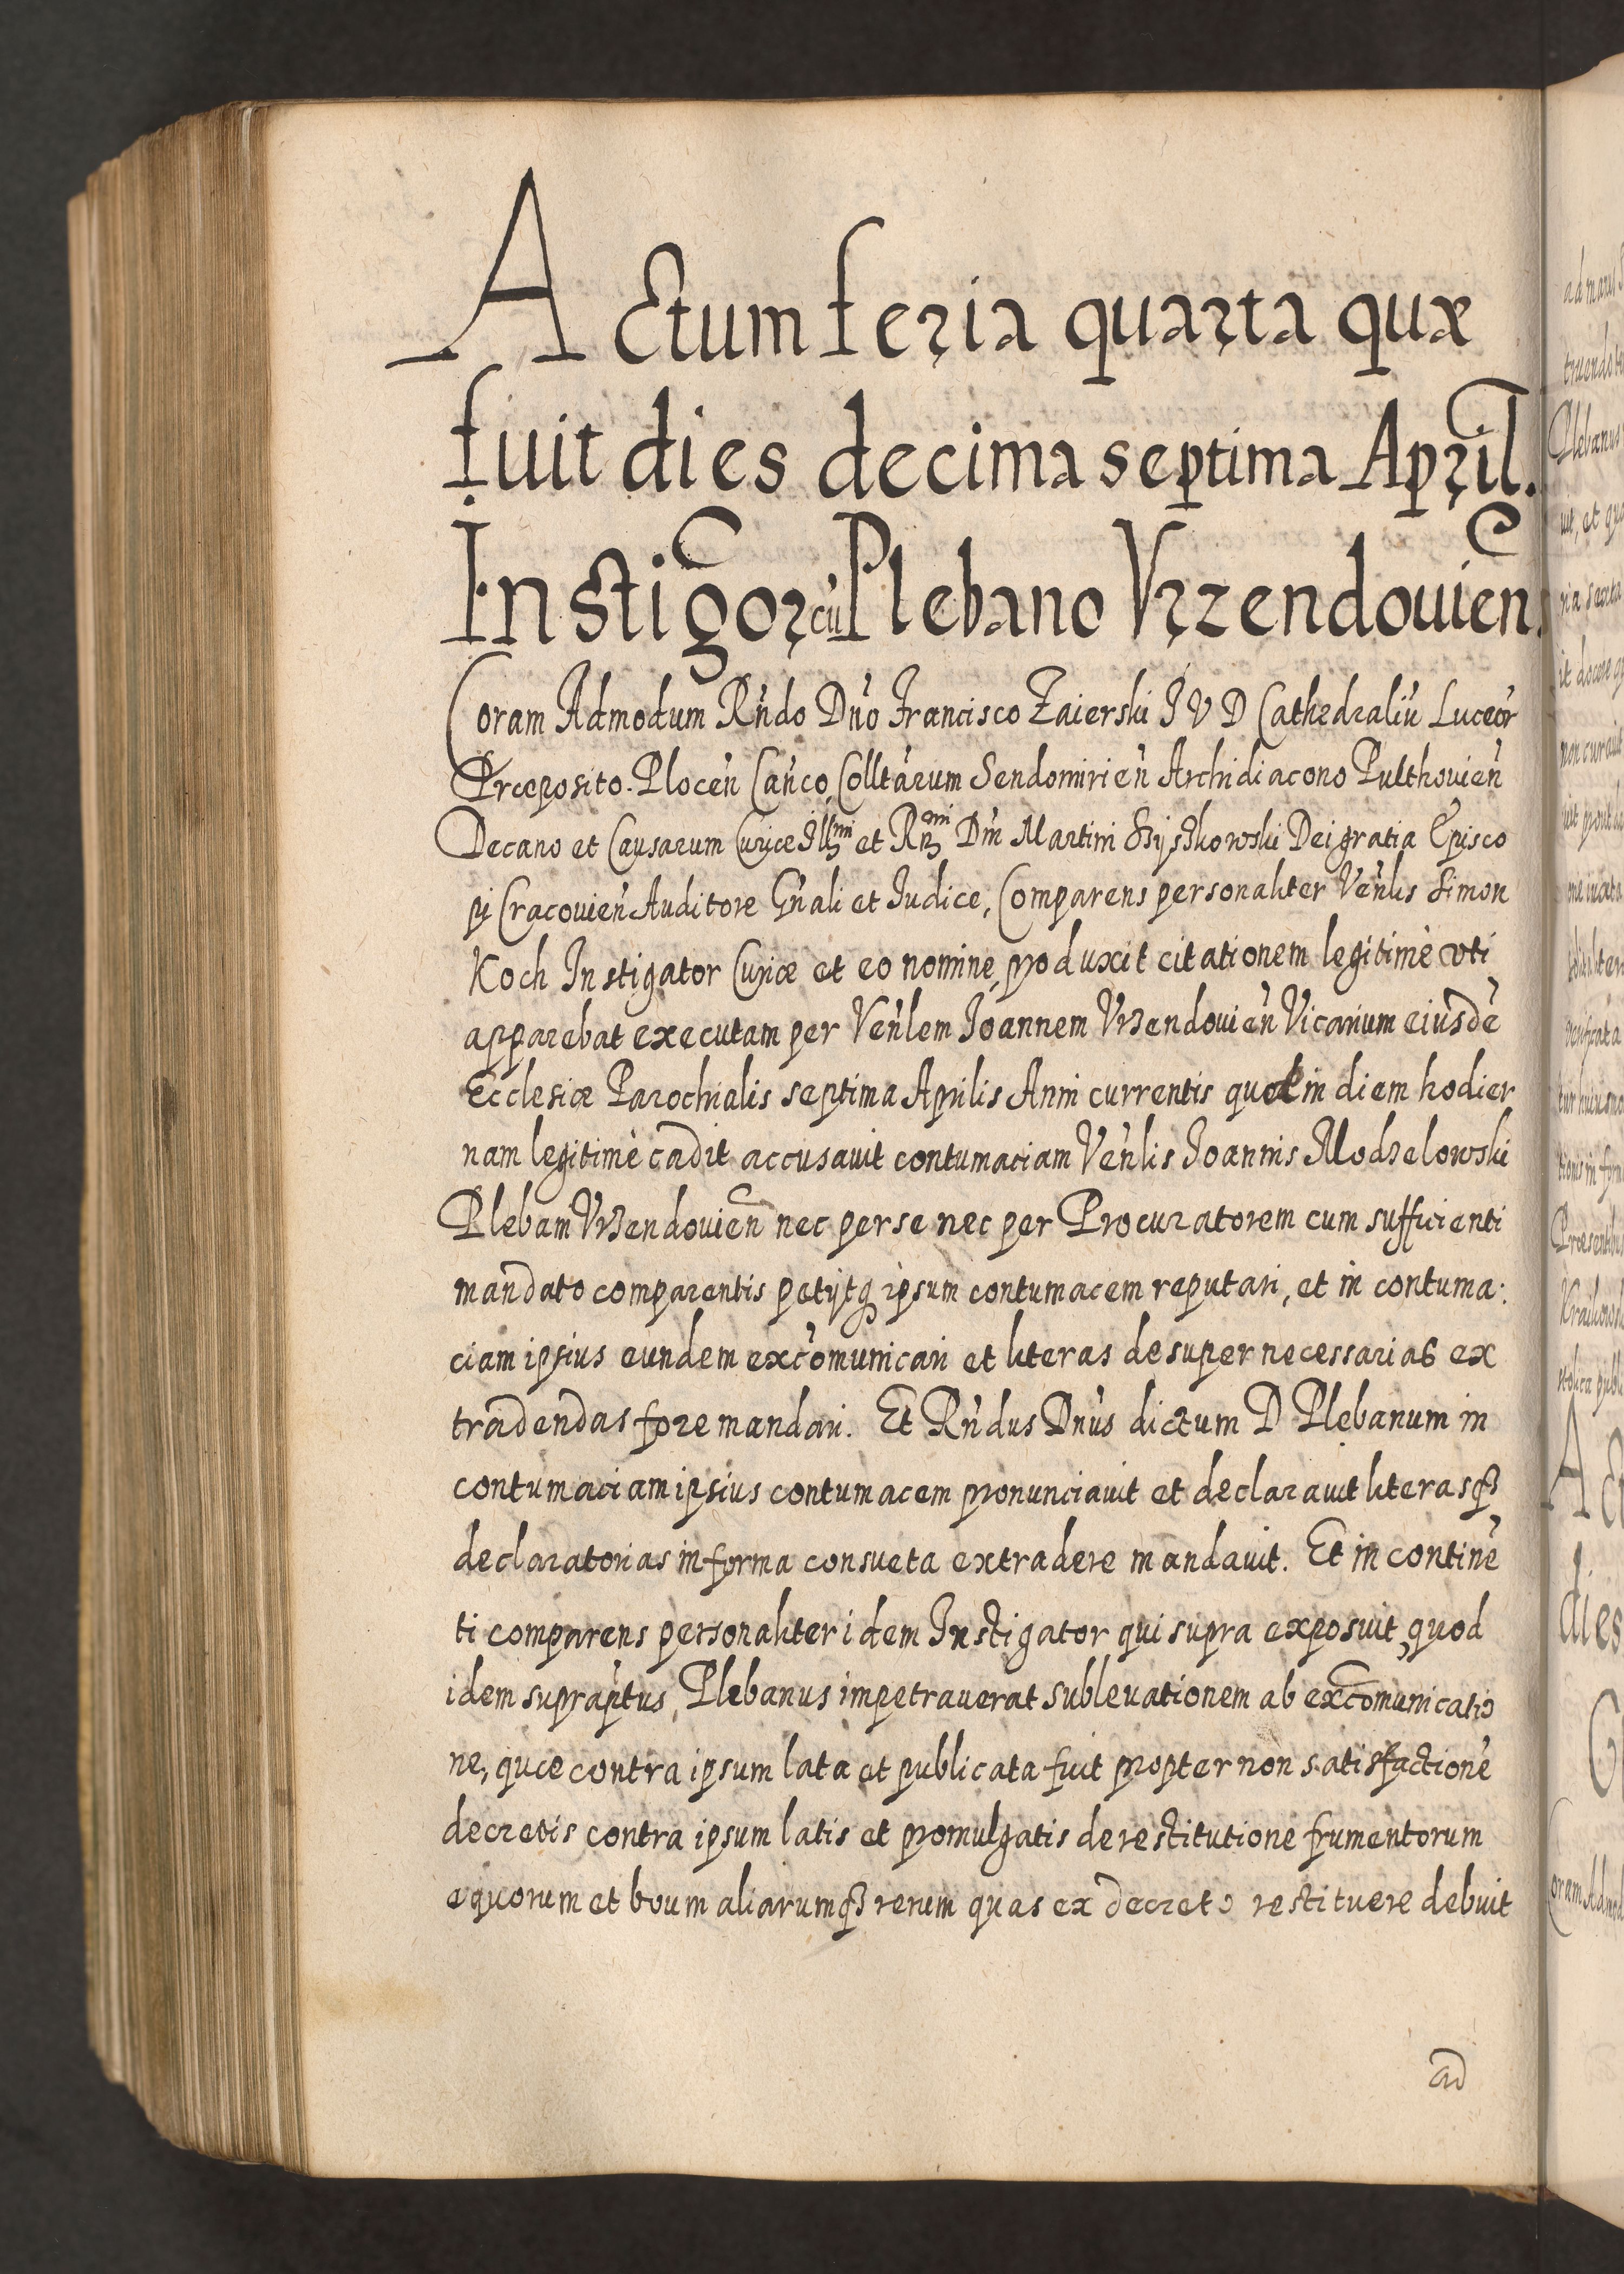 Actum feria quarta quæ
fuit dies decima septima April.
Instigor cũ Plebano Vrzendouien.
Coram Admodum Rńdo Dńo Francisco Zaierski I V D Cathedraliũ Luceor
Præposito. Plocen̄ Cań̄co, Colltarum Sendomirien̄ Archidiacono Pulthouien̄
Decano et Causarum Curiæ Illmi et Rmi Dni Martini Szyszkowski Dei gratia Episco
pi Cracouien̄ Auditore Gńali et Iudice, Comparens personaliter Veńlis Simon
Koch Instigator Curiæ et eo nomine, produxit citationem legitimè vti
apparebat executam per Veńlem Ioannem Vrzendouien̄ Vicarium eiusdē
Ecclesiæ Parochialis septima Aprilis Anni currentis in diem hodier
nam legitimè cadit accusauit contumaciam Veńlis Ioannis Modzelowski
Plebani Vrzendouien̄ nec per se nec per Procuratorem cum sufficienti
mandato comparentis petijtq ipsum contumacem reputari, et in contuma:
ciam ipsius eundem exc̄omunicari et literas desuper necessarias ex
tradendas fore mandari. Et Rńdus Dńus dictum D Plebanum in
contumaciam ipsius contumacem pronunciauit et declarauit literasqȝ
declaratorias in forma consueta extradere mandauit. Et in continē
ti comparens personaliter idem Instigator qui supra exposuit, quod
idem supraptus, Plebanus impetrauerat subleuationem ab exc̄omunicatio
ne, quæ contra ipsum lata et publicata fuit propter non satisfactionē
decretis contra ipsum latis et promulgatis de restitutione frumentorum
equorum et boum aliarumqȝ rerum quas ex decreto restituere debuit
ad